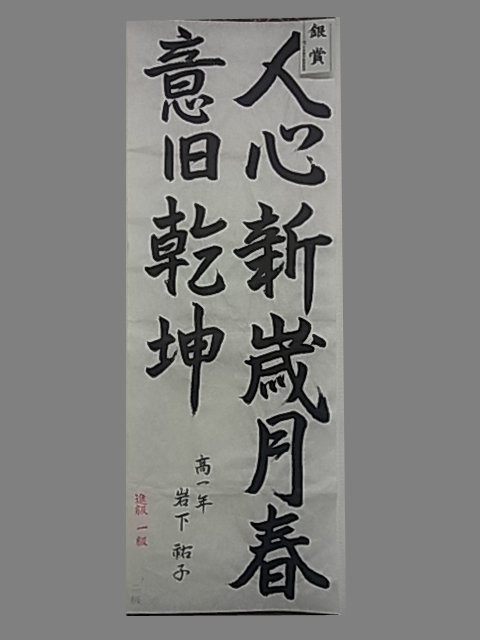 銀賞
人心新歳月春
意旧乾坤
高一年
岩下祐子
進級一級